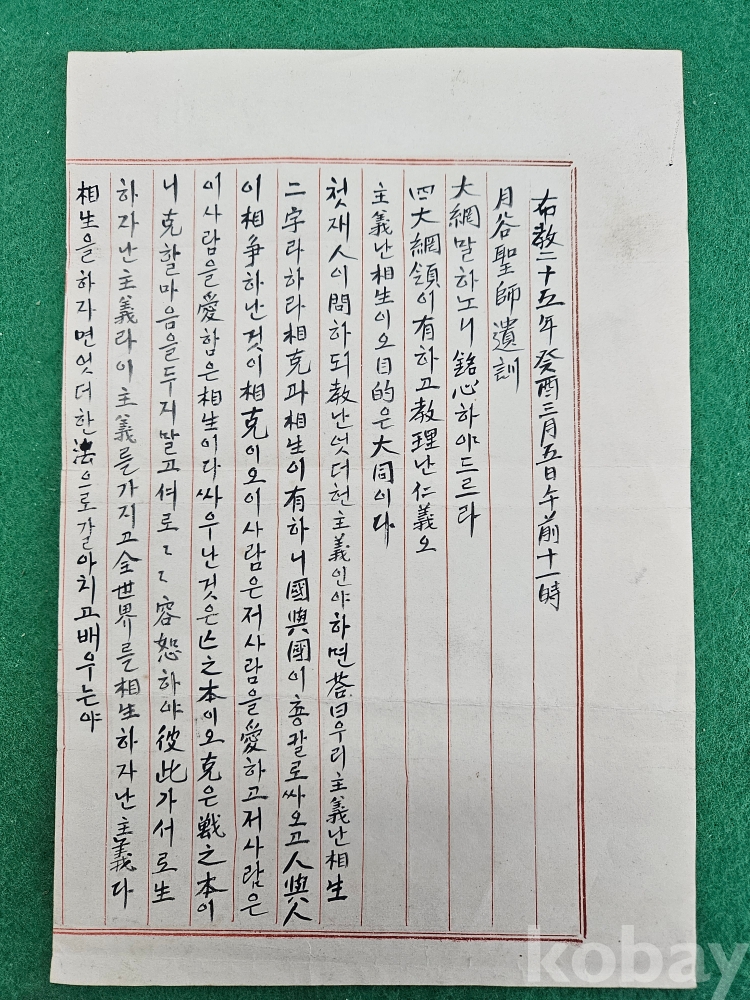 布教二十五年癸酉三月五日午前十一時
月谷聖師遺訓
大綱말하노니銘心하야드르라
四大綱領이有하고教理난仁義오
主義난相生이오目的은大同이다
첫재人이問하되教난엇더헌主義인야하면答曰우리主義난相生
二字라하라相克과相生이有하니國與國이총칼로싸오고人與人
이相爭하난것이相克이오이사람은저사람을愛하고저사람은
이사람을愛함은相生이다싸우난것은亡之本이오克은戰之本이
니克할마음을두지말고셔로〻容恕하야彼此가서로生
하자난主義라이主義를가지고全世界를相生하자난主義다
相生을하자면엇더한法으로갈아치고배우는야
kobay